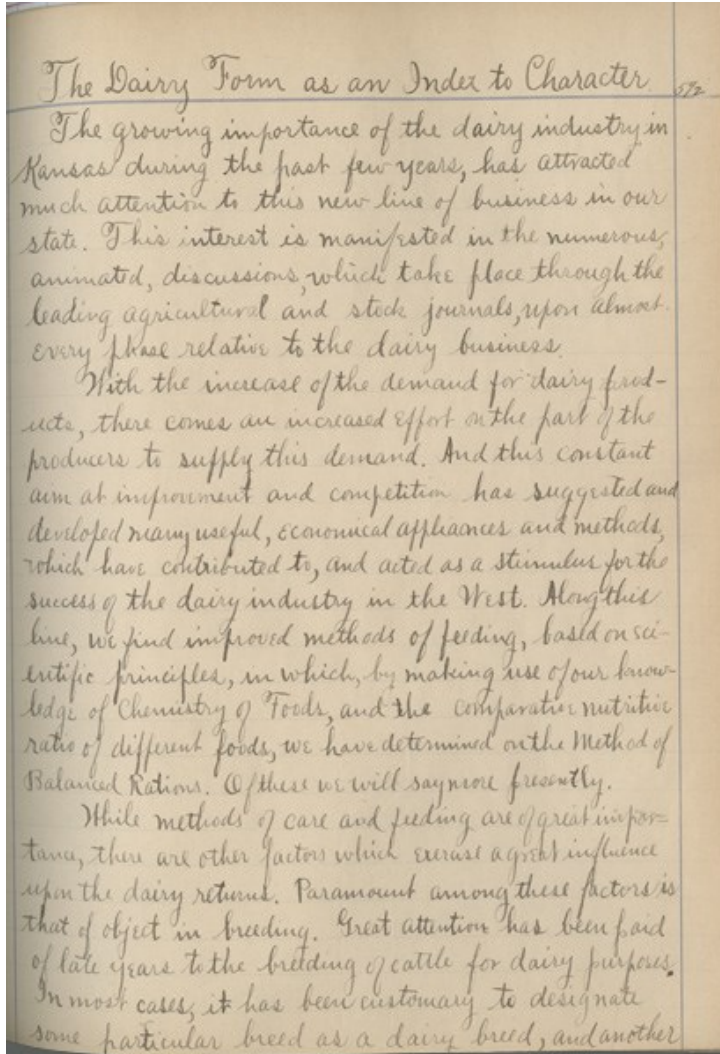 The Dairy Form as an Index to Character 592
The growing importance of the dairy industry in
Kansas during the past few years, has attracted
much attention to this new line of business in our
state. This interest is manifested in the numerous,
animated, discussions, which take place through the
leading agricultural and stock journals, upon almost
every phase relative to the dairy business.
With the increase of the demand for dairy prod-
ucts, there comes an increased effort on the part of the
producers to supply this demand. And this constant
aim at improvment and competition has suggested and
developed many useful, economical appliances and methods,
which have contributed to, and acted as a stimulus for the
success of the dairy industry in the West. Along this
line, we find improved methods of feeding, based on sci-
entific principles, in which, by making use of our know-
ledge of Chemistry of Foods, and the comparative nutritive
ratio of different foods, we have determined on the Method of
Balanced Rations. Of these we will say more presently.
While methods of care and feeding are of great impor=
tance, there are other factors which exercise a great influence
upon the dairy returns. Paramount among these factors is
that of object in breeding. Great attention has been paid
of late years to the breeding of cattle for dairy purposes.
In most cases, it has been customary to designate
some particular breed as a dairy breed, and another